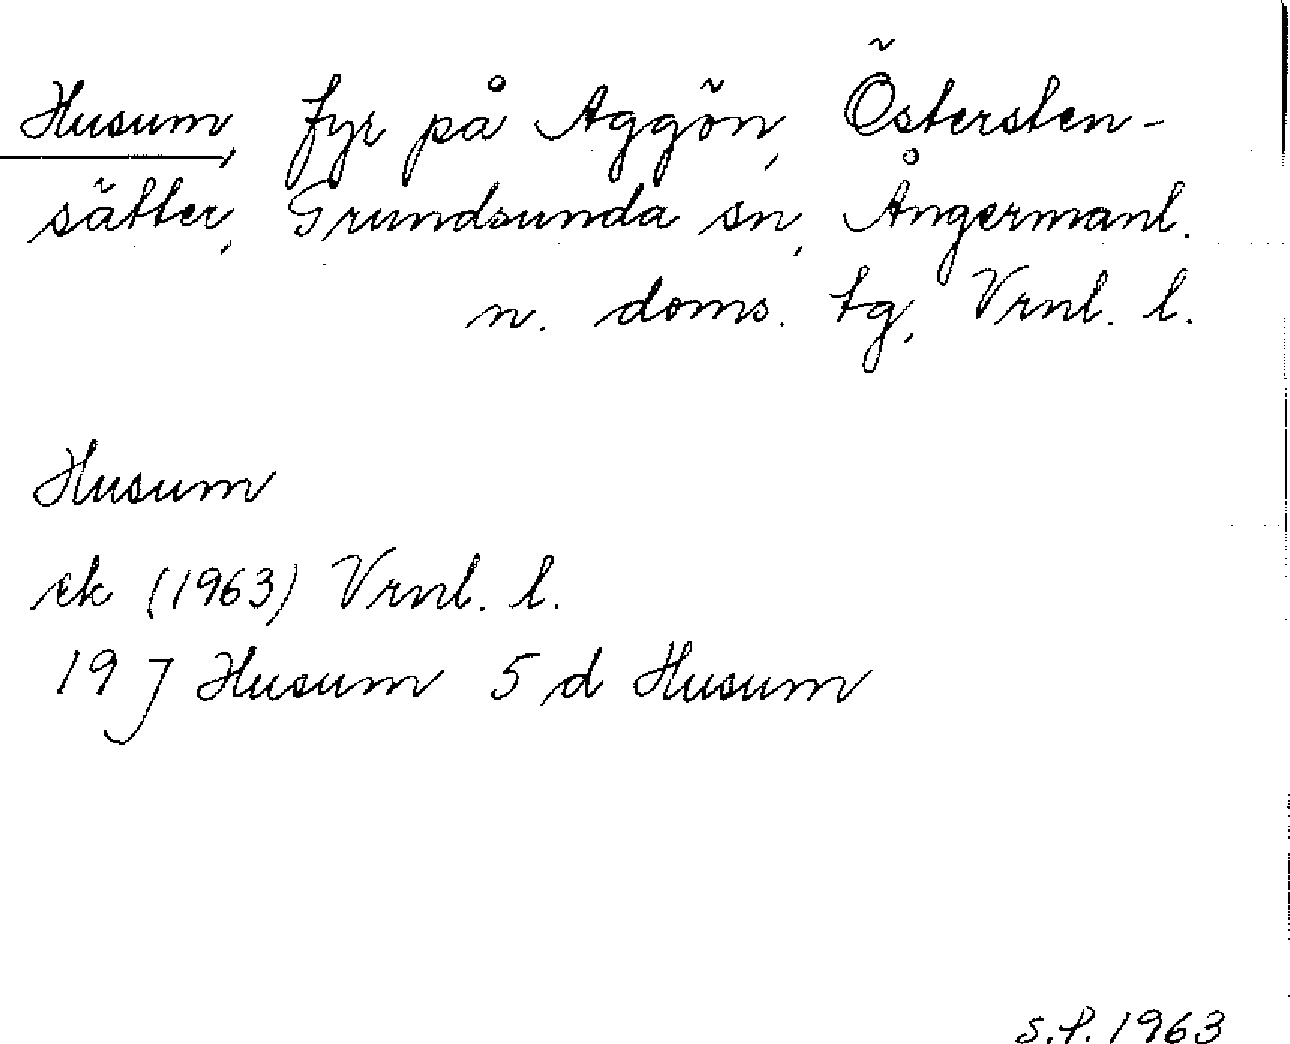 Husum, fyr på Aggön, Östersten-
sätter, Grundsunda sn, Ångermanl.
n. doms. tg, Vrnl. l.
Husum
ek (1963) Vrnl. l.
19 J Husum 5 d Husum
S.P. 1963